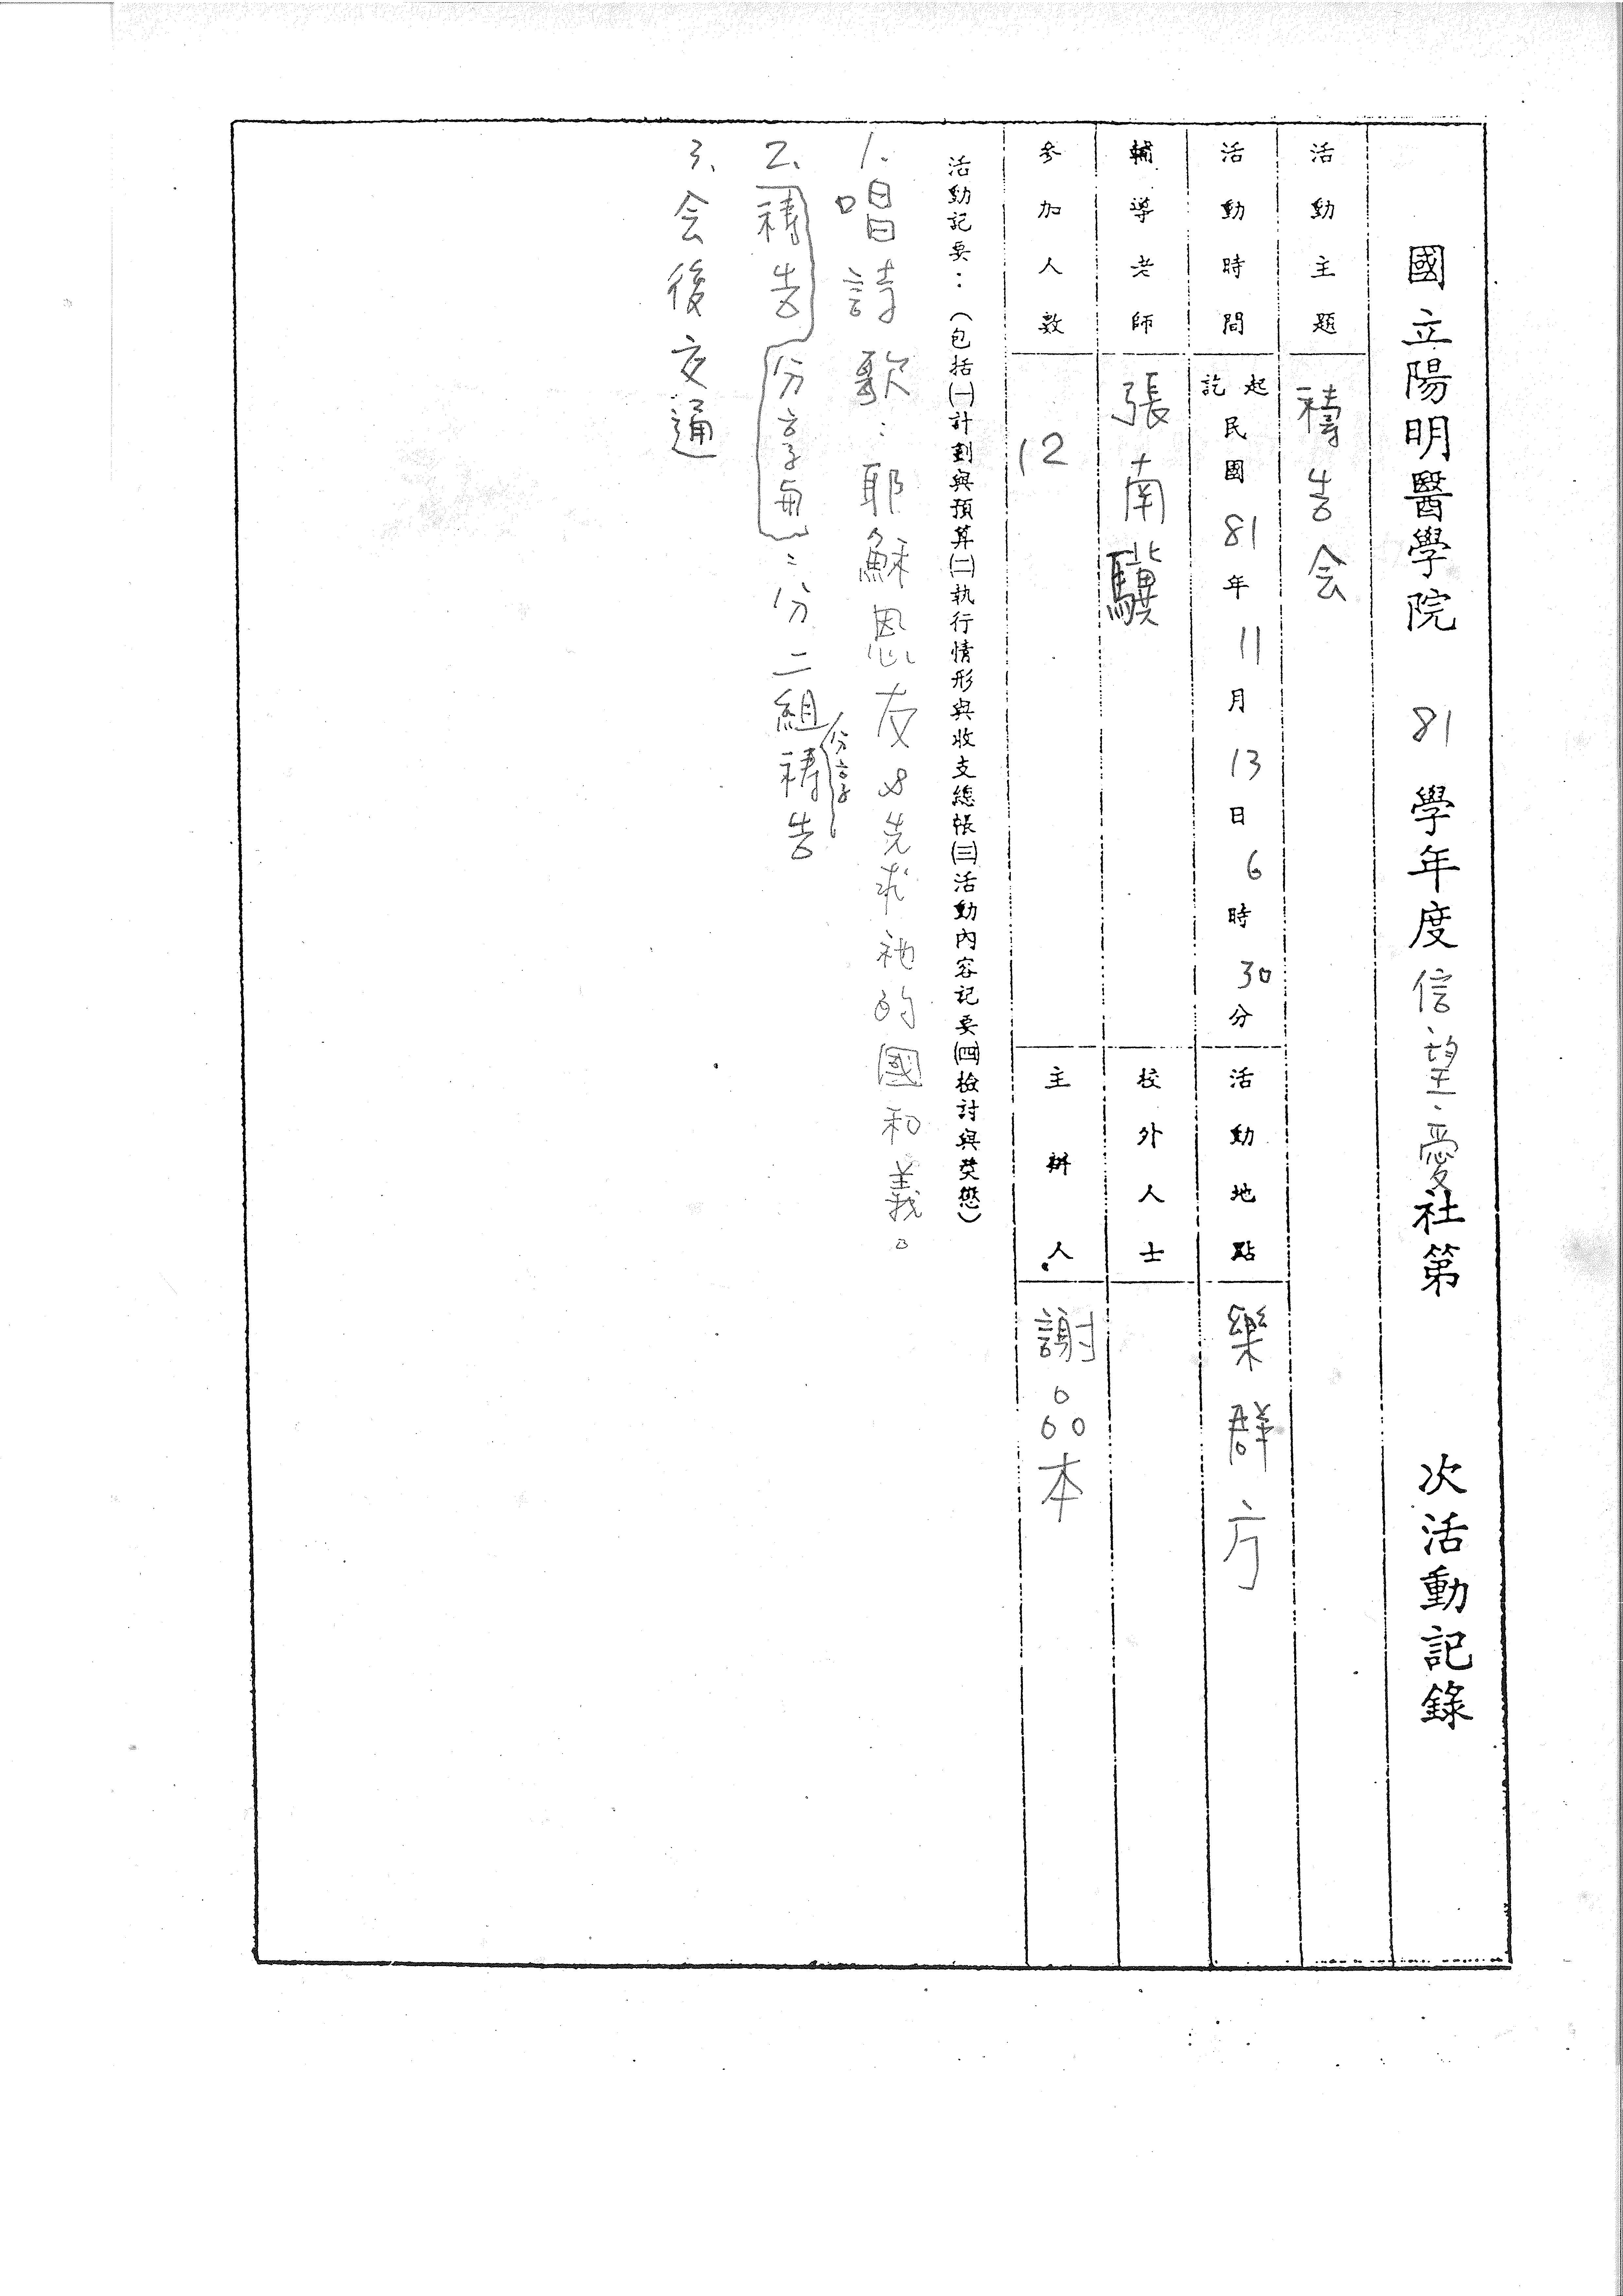 國立陽明醫學院 81 學年度信望愛社第 次活動記錄
活動主題 禱告会
活動時間 起訖 民國 81 年 11 月 13 日 6 時 30 分 活動地點 樂群廳
輔導老師 張南驥 校外人士
參加人數 12 主辦人 謝
活動記要：（包括㈠計劃與預算㈡執行情形與收支總帳㈢活動內容記要㈣檢討與獎懲）
1. 唱詩歌：耶穌恩友 & 先求祂的國和義。
2. 禱告 分享 : 分二組分享禱告
3. 会後交通